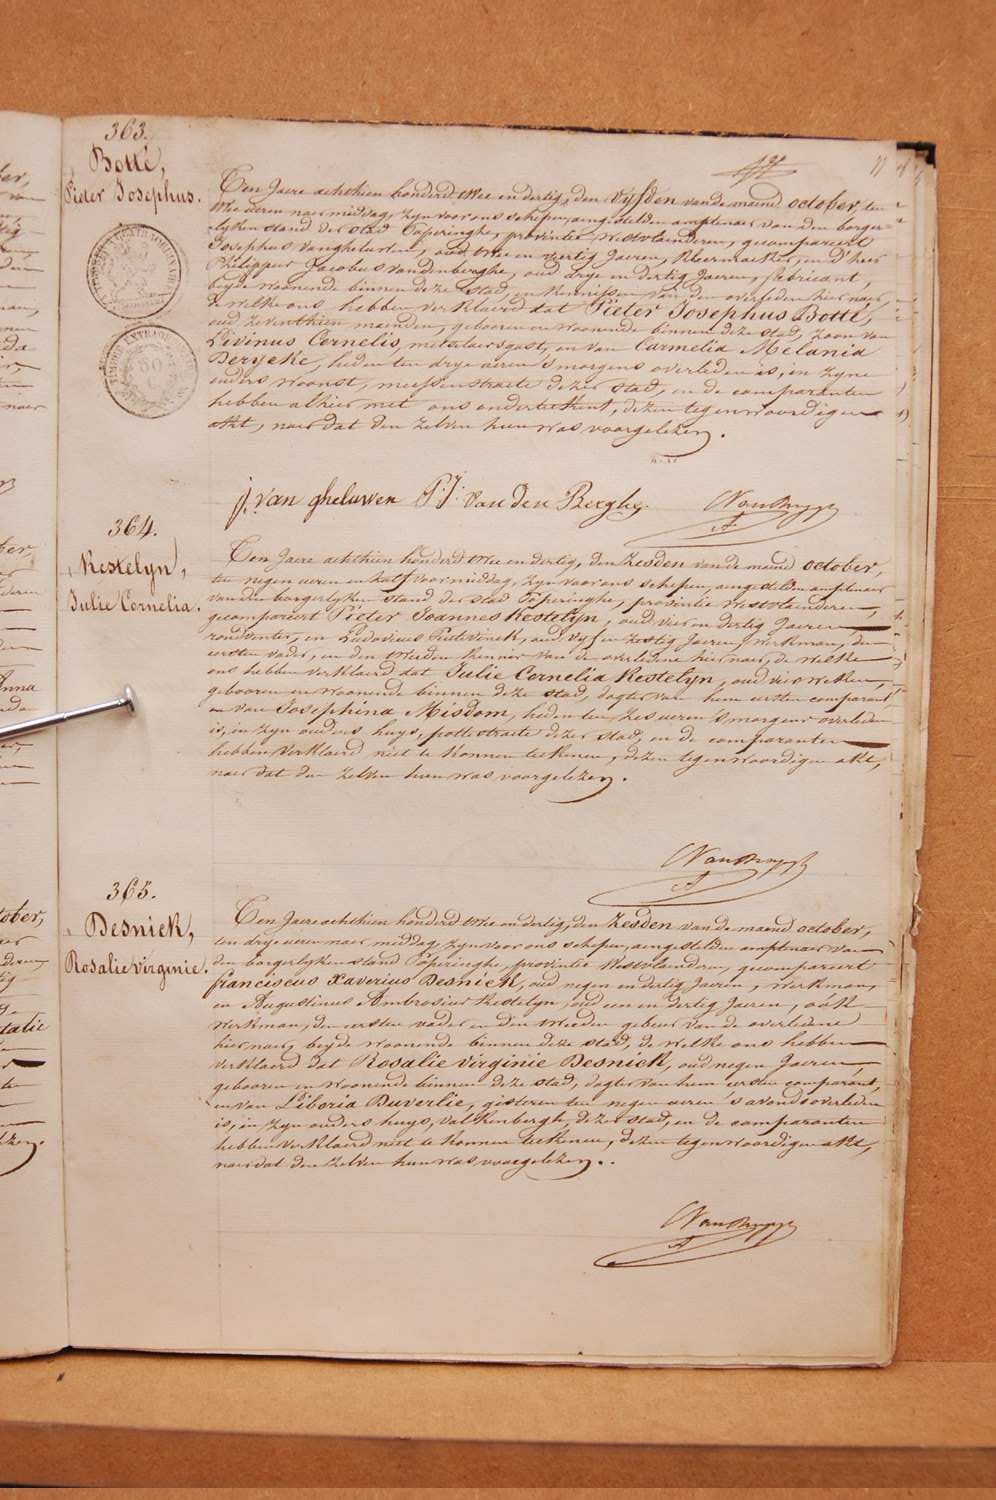 363.
Botté,
Pieter Josephus.
Ten Jaere achthien honderd twee en dertig, den vyfden van de maend october, ten
twee ueren naer middag, zyn voor ons schepen, aengestelden amptenaer van den borger-
lyken stand der stad Poperinghe, provintie Westvlaenderen, gecompareert
Josephus Vangheluwen, oud twee en veertig Jaeren, Kleermaeker, en d'heer
Philippus Jacobus Vandenberghe, oud drye en dertig Jaeren, fabricant,
beyde woonende binnen deze stad, en kennissen van den overleden hier naer,
de welke ons hebben verklaerd dat Pieter Josephus Botté,
oud zeventhien maenden, gebooren en woonende binnen deze stad, zoon van
Livinus Cornelis, metselaersgast, en van Carmelia Melania
Deryeke, heden ten drye ueren 's morgens overleden is, in zyne
ouders woonst, meessenstraete dezer stad, en de comparanten
hebben alhier met ons onderteekent, dezen tegenwoordigen
akt, naer dat den zelven hun was voorgelezen.
J. van gheluwen P: J: van den Berghe
364.
Kestelyn,
Julie Cornelia.
Ten Jaere achthien honderd twee en dertig, den zesden van de maend october,
ten negen ueren en half voor middag, zyn voor ons schepen, aengestelden amptenaer
van den borgerlyken stand der stad Poperinghe, provintie Westvlaenderen,
gecompareert Pieter Joannes Kestelyn, oud vier en dertig Jaeren
en Ludovicus oud vyf en zestig Jaeren, werkman, den
eersten vader, en den tweeden kennis van de overledene hier naer, de welke
ons hebben verklaerd dat Julie Cornelia Kestelyn, oud vier weken,
gebooren en woonende binnen deze stad, dogter van hem eersten comparant,
en van Josephina Misdom, heden ten zes ueren 's morgens overleden
is, in zyn ouders huys, pottestraete dezer stad, en de comparanten
hebben verklaerd niet te konnen teekenen, dezen tegenwoordigen akt,
naer dat den zelven hun was voorgelezen.
365.
Desnick,
Rosalie Virginie.
Ten Jaere achthien honderd twee en dertig, den zesden van de maend october,
ten drye ueren naer middag, zyn voor ons schepen, aengestelden amptenaer van
den borgerlyken stand Poperinghe, provintie Westvlaenderen, gecompareert
franciscus Xaverius Desnick, oud negen en dertig Jaeren, werkman,
en Augustinus Ambrosius Kestelyn, oud een en dertig Jaeren, oók
werkman, den eersten vader en den tweeden gebeur van de overledene
hier naer, beyde woonende binnen deze stad, de welke ons hebben
verklaerd dat Rosalie Virginie Desnick, oud negen Jaeren,
gebooren en woonende binnen deze stad, dogter van hem eersten comparant,
en van Liboria Duverlie, gisteren ten negen ueren 's avonds overleden
is, in zyn ouders huys, valkenbergh, dezer stad, en de comparanten
hebben verklaerd niet te konnen teekenen, dezen tegenwoordigen akt,
naer dat den zelven hun was voorgelezen.